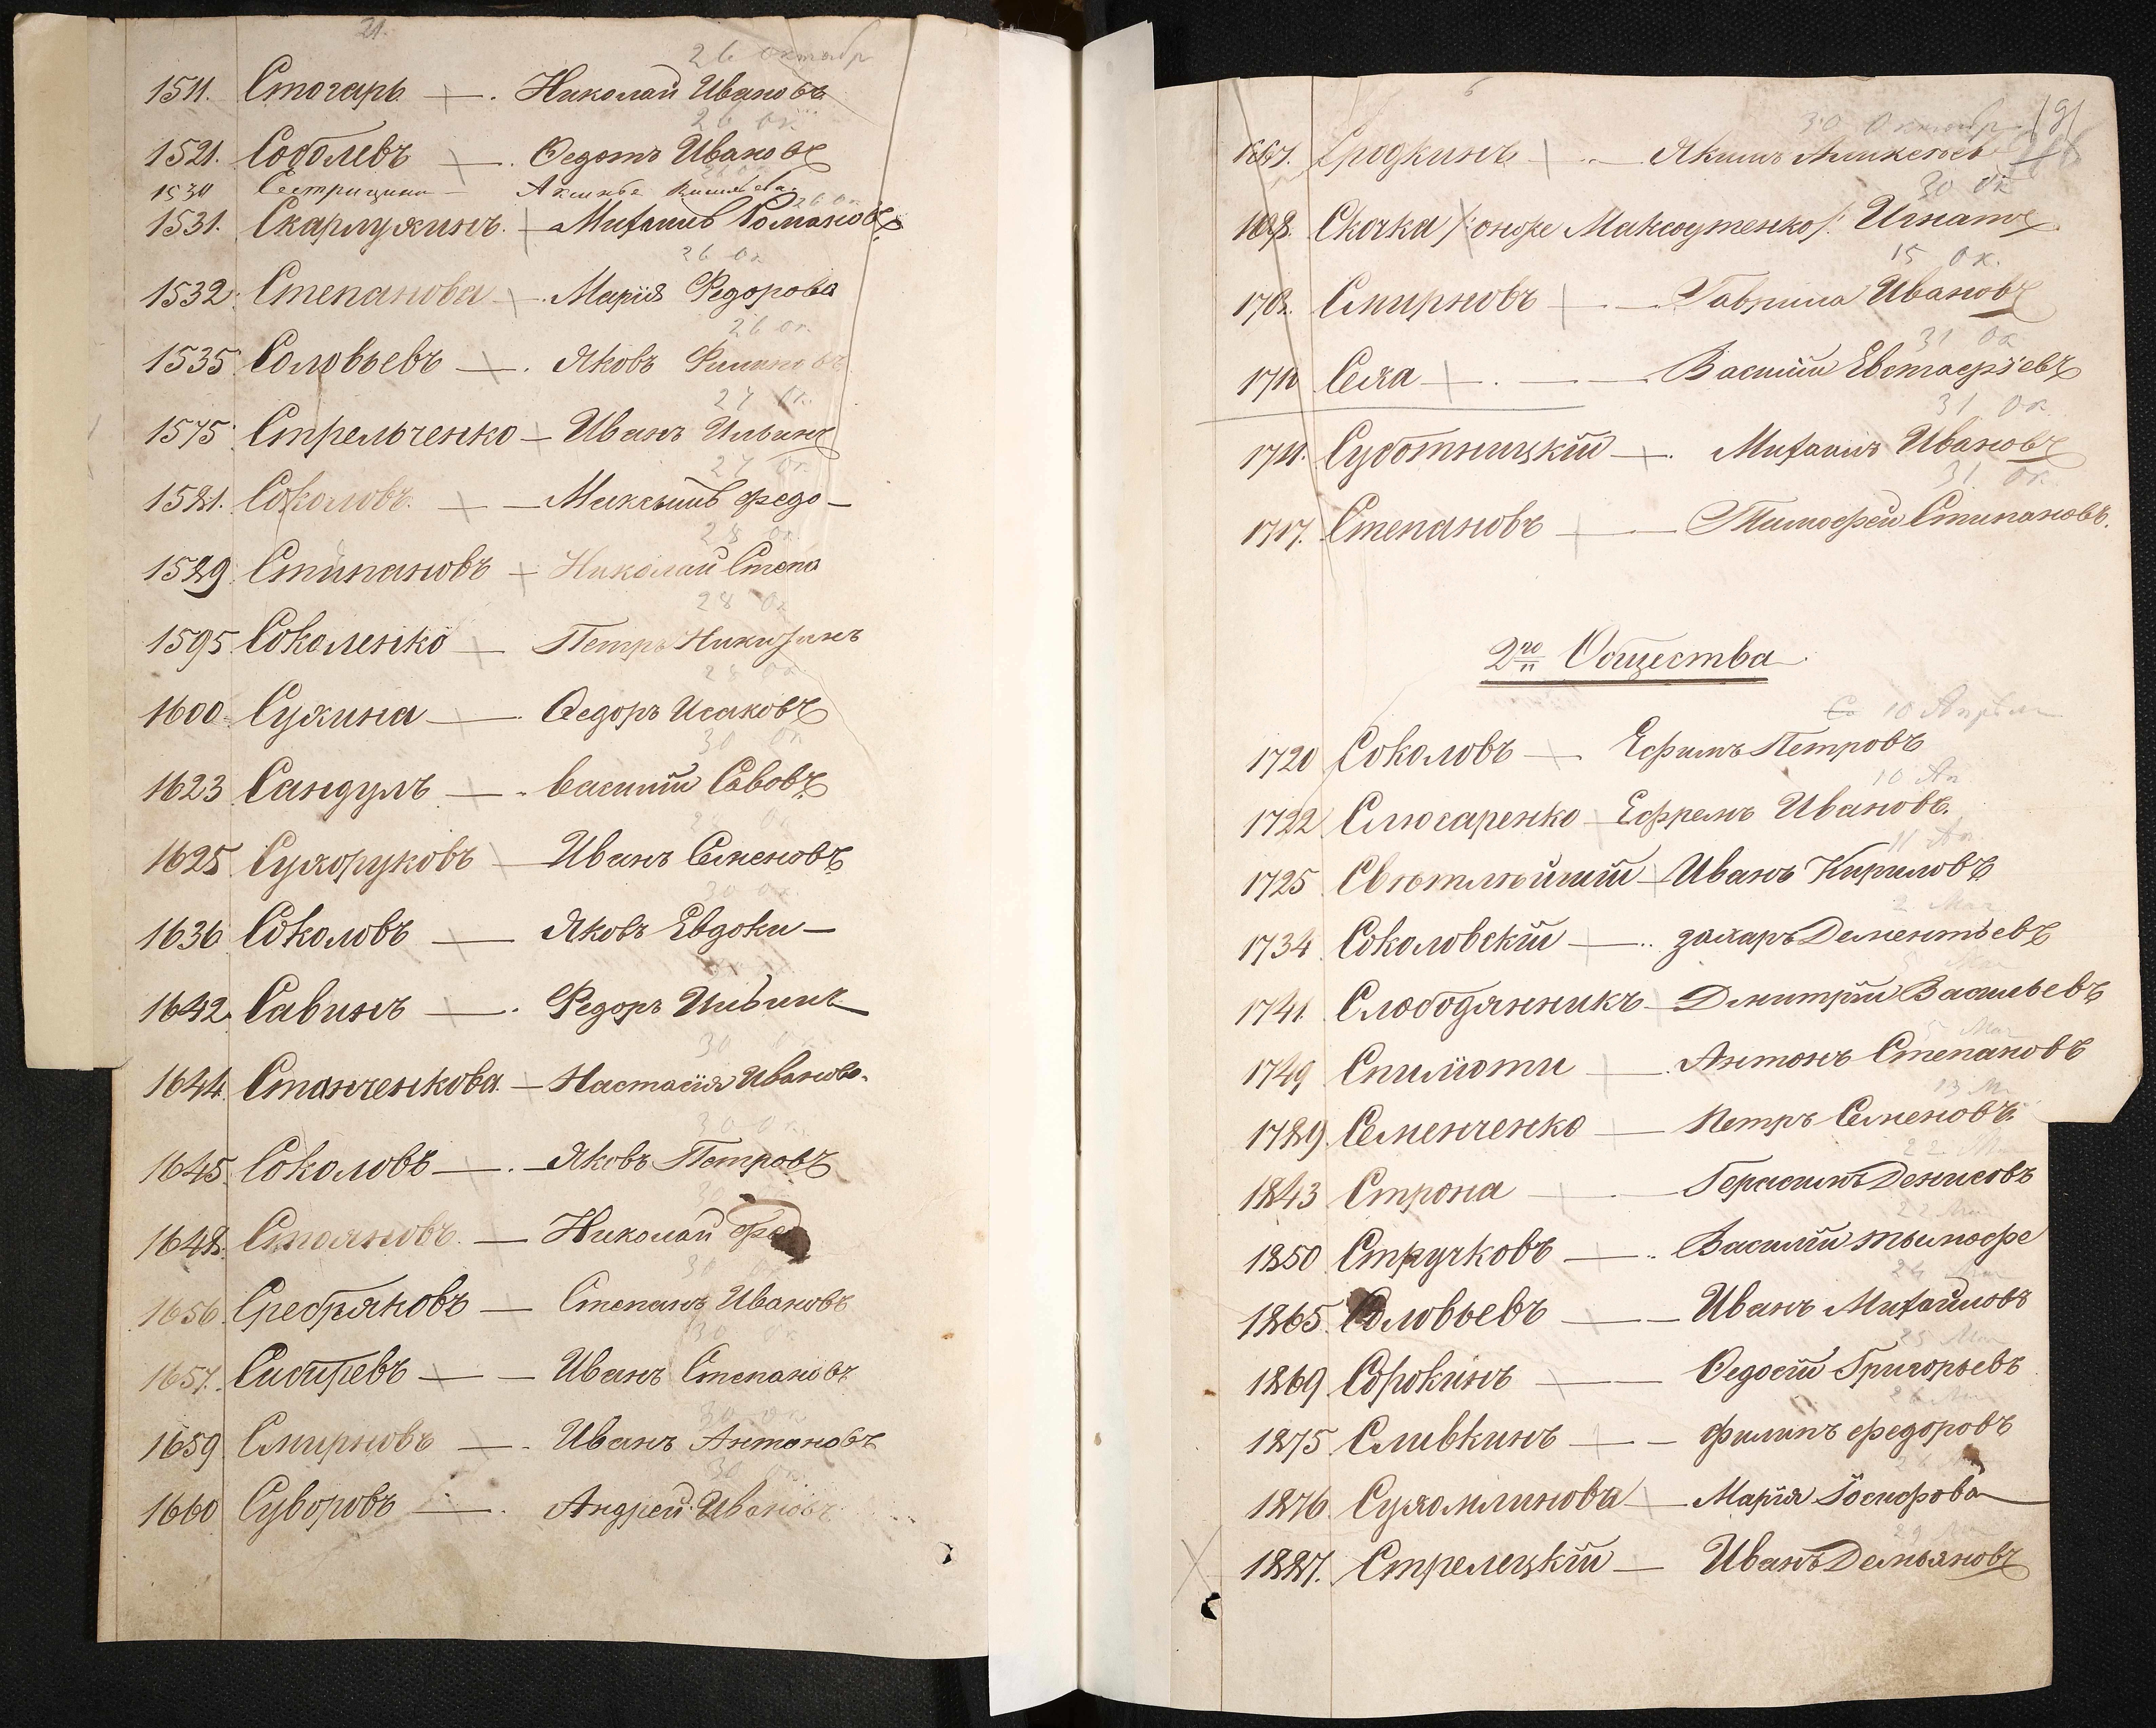 21.
26 октябр
1511. Стогарь — Николай Ивановъ
26 Ок
1521. Соболевъ — Ѳедотъ Ивановъ
1530 Сестрицина — Васильева
26 Ок
1531. Скарлухинъ — Михаилъ Романовъ
26 Ок
1532. Степанова — Марія Федорова
26 Ок.
1535 Соловьевъ — Яковъ
27 Ок.
1575 Стрельченко — Иванъ Ильинъ
27 Ок.
1581. Соколовъ — Максимъ Федо—
28 Ок.
1589 Стипановъ — Николай Степа
28 Ок
1595 Соколенко — Петръ Никифинъ
28 Ок
1600 Сухина — Ѳедоръ Исаковъ
30 Ок
1623 Сандулъ — Василій Савовъ
Ок
1625 Сухоруковъ — Иванъ Семеновъ
30 Ок.
1636 Соколовъ — Яковъ Евдоки—
1642. Савинъ — Федоръ Ильинъ
30 Ок
1644. Станченкова — Настасія Иванова
30 Ок
1645 Соколовъ — Яковъ Петровъ
30
1648. Стояновъ — Николай Фе
30 Ок
1656 Сребряковъ — Степанъ Ивановъ
30 Ок
1657. Сибиревъ — Иванъ Степановъ
30 Ок
1659 Смирновъ — Иванъ Антоновъ
30 Ок
1660 Суворовъ — Андрей Ивановъ
30 Октябр. 191
1667. Сродкинъ — Якимъ Аликсѣевъ
30 Ок
1698. Скочка /: онъ же Максютенко /: Игнатъ
15 Ок.
1708. Смирновъ — Гаврила Ивановъ
31 Ок
1710 Сеха — Василій Евстафіевъ
31 Ок
1711. Суботницкій — Михаилъ Ивановъ
31. Ок.
1717. Степановъ — Тимофей Стипановъ.
2го Общества
10 Апрѣля
1720 Соколовъ — Ефимъ Петровъ
10 Ап
1722 Слюсаренко — Ефремъ Ивановъ.
11 Ап
1725 Свѣтлѣйшій — Иванъ Кириловъ
2 Мая
1734 Соколовскій — Захаръ Дементьевъ
5 Мая
1741. Слободянникъ — Дмитрій Васильевъ
5 Мая
1749 Спилiоти — Антонъ Степановъ
13 М
1789. Семенченко — Петръ Семеновъ
22 М
1843 Строна — Герасимъ Денисовъ
22 Мая
1850 Стручковъ — Василій тымофе
24 Мая
1865. Соловьевъ — Иванъ Михайловъ
25 Мая
1869 Сорокинъ — Ѳедосій Григорьевъ
26 Мая
1875 Сливкинъ — Филипъ Федоровъ
26 Ма
1876 Сухомлинова — Марія Іосифова
29 Ма
1887. Стрелецкій — Иванъ Демьяновъ